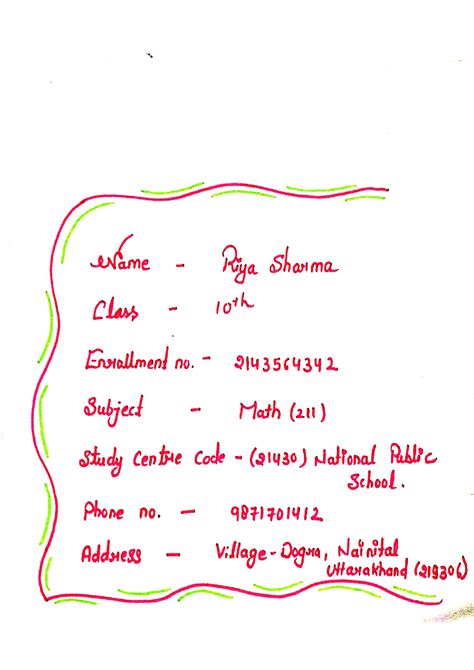 Name - Riya Sharma
Class - 10th
Enrollment no. - 2143564342
Subject - Math (211)
Study Centre Code - (21430) National Public
School.
Phone no. - 9871701412
Address - Village - Dogra, Nainital
Uttarakhand (219306)